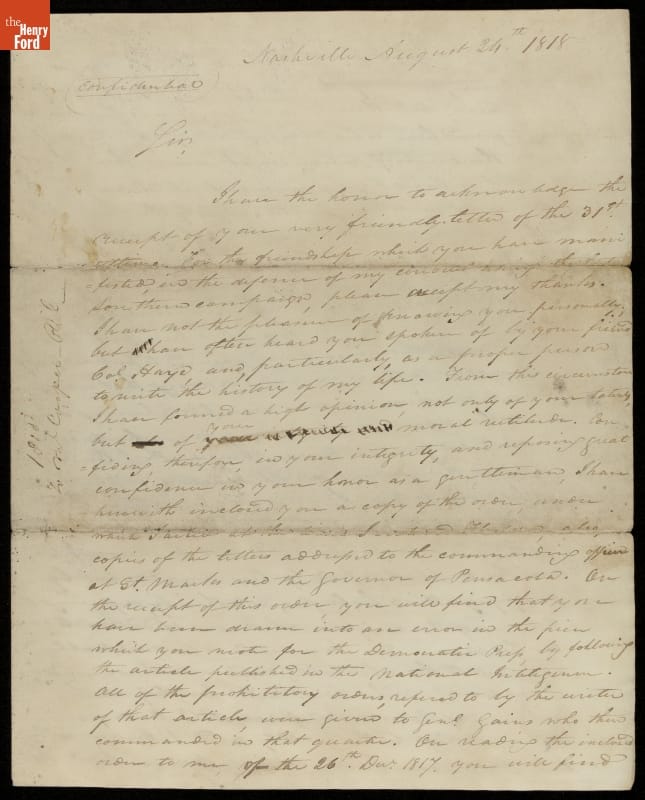 the
Henry
Ford
Nashville August 24th. 1818
Confidential
Sir,
I have the honor to acknowledge the
receipt of your very friendly letter of the 31st.
ultimo. For the friendship which you have mani
=fested in the defence of my conduct during the
Southern campaign, please accept my thanks.
I have not the pleasure of knowing you personally,
but have often heard you spoken of by your friend
Col. Hayne, and, particularly, as a proper person
to write the history of my life. From this circumstance
I have formed a high opinion, not only of your talents,
but of your moral rectitude. Con
=fiding, therefore, in your integrity, and reposing great
confidence in your honor as a gentleman, I have
herewith inclosed you a copy of the order, under
which I acted at the time I entered Florida, also,
copies of the letters addressed to the commanding officer
at St. Marks and the Governor of Pensacola. On
the receipt of this order you will find, that you
have been drawn into an error in the piece
which you wrote for the Democratic Press, by following
the article published in the National Intelligencer.
All of the prohibitory orders, refered to by the writer
of that article, were given to Genl. Gains who then
commanded in that quarter. On reading the inclosed
order to me, of the 26th. Decr. 1817, you will find
1818